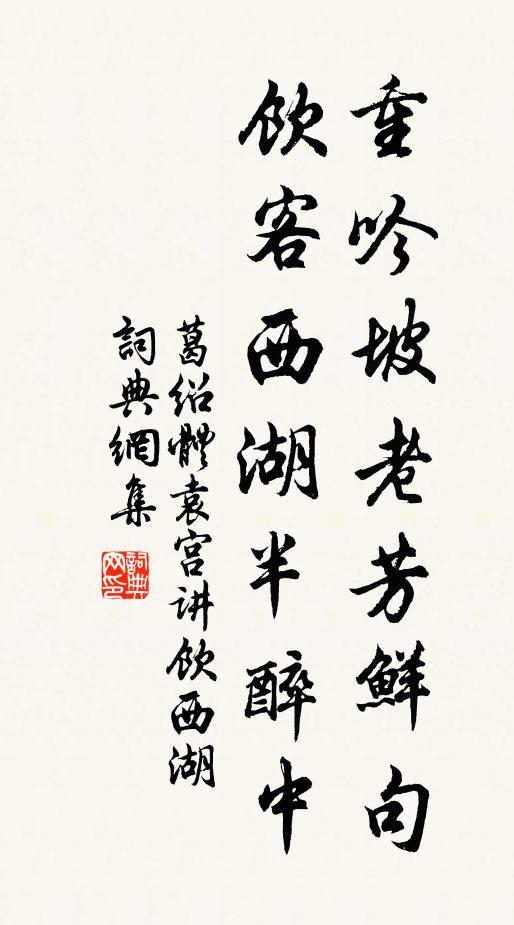 重吟坡老芳鮮句
飲客西湖半醉中
葛绍體袁宫讲飲西湖
詞典網集
詞典网印